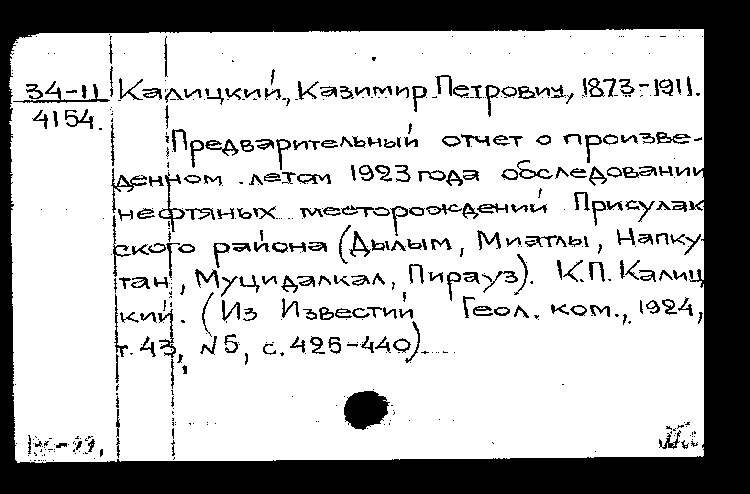 34-11 Калицкий, Казимир Петрович, 1873-1911.
4154.
Предварительный отчет о произве-
денном летом 1923 года обследовании
нефтяных месторождений Присулак
ского района (Дылым, Миатлы, Напку-
тан, Муцидалкал, Пирауз). К.П. Калиц
кий. (Из Известий Геол. ком., 1924,
т. 43, N5, с. 425-440)